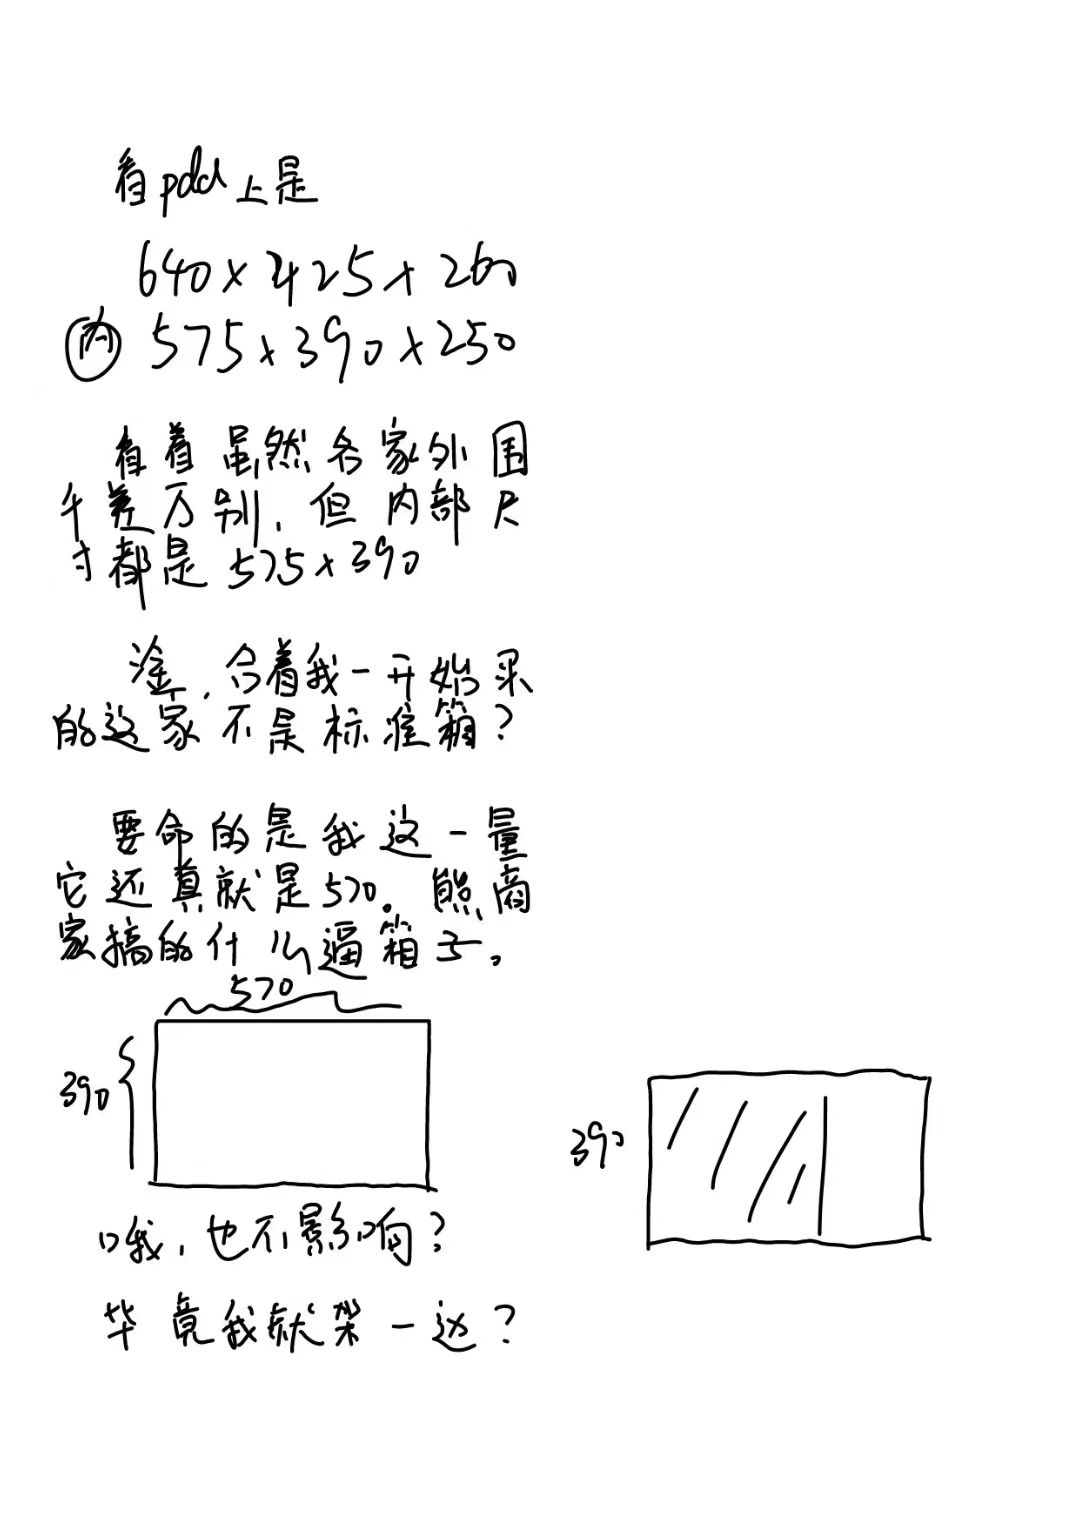 看pdd上是
640×425×260
内 575×390×250
看着虽然各家外围
千差万别,但内部尺
寸都是575×390
淦,合着我一开始买
的这家不是标准箱?
要命的是我这一量
它还真就是570。熊商
家搞的什么逼箱子。
570
390
390
哦,也不影响?
毕竟我就架一边?